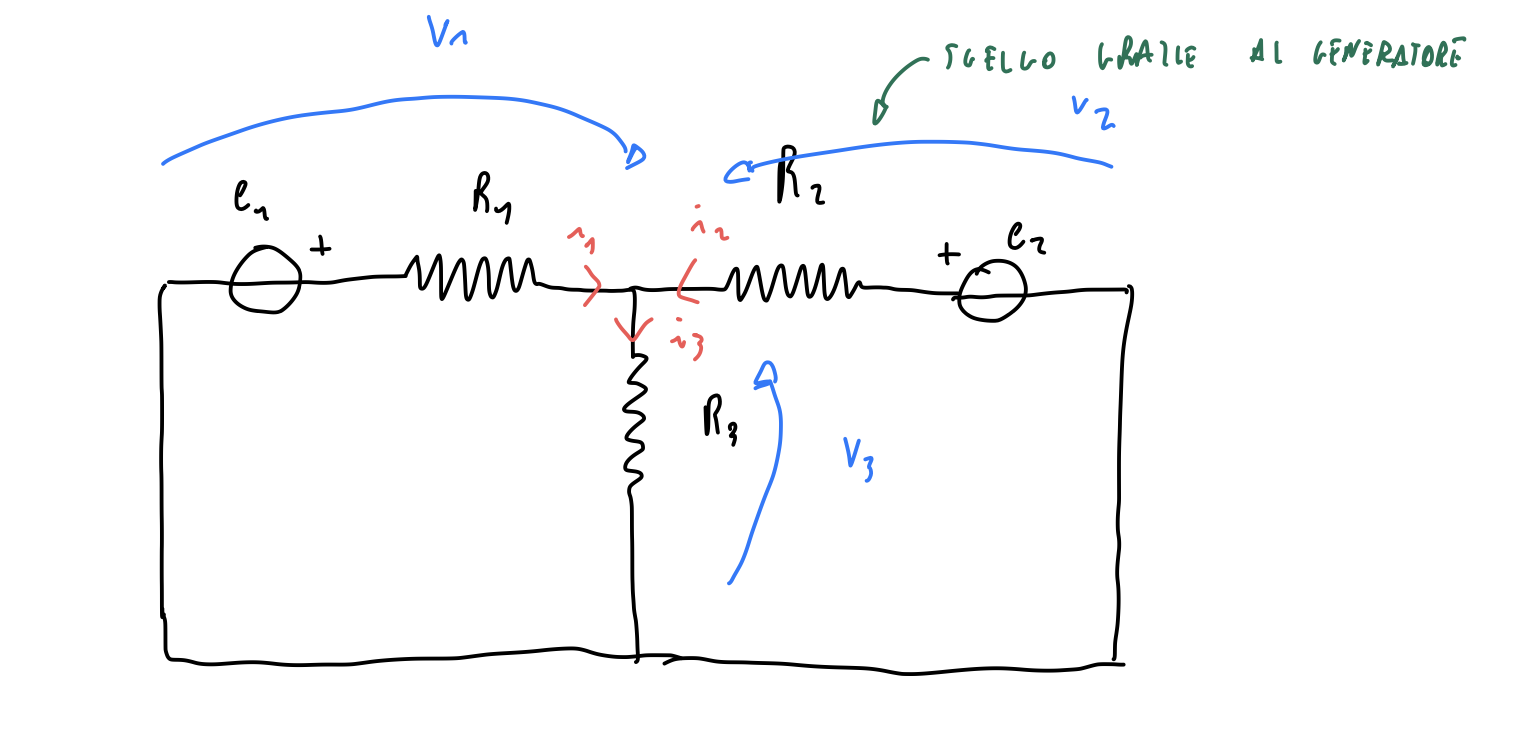 V1
SCELGO GRAZIE AL GENERATORE
V2
e1
+
R1
i1
i2
R2
+
e2
i3
R3
V3